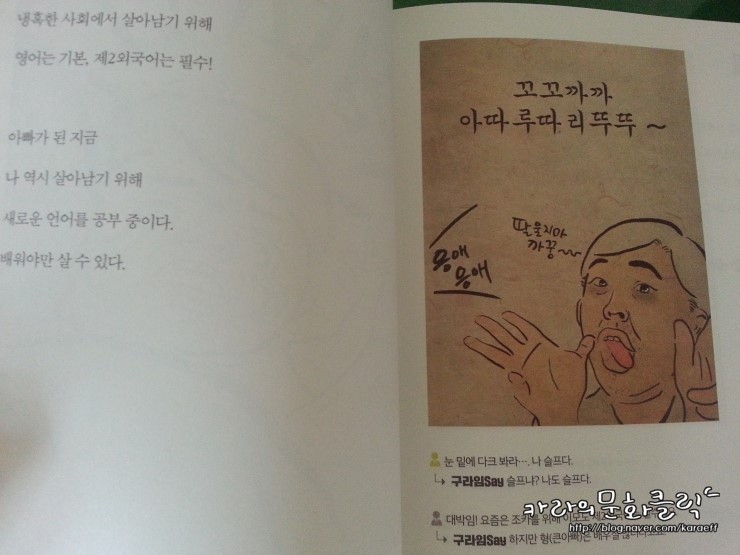 냉혹한 사회에서 살아남기 위해
영어는 기본, 제2외국어는 필수!
아빠가 된 지금
나 역시 살아남기 위해
새로운 언어를 공부 중이다.
배워야만 살 수 있다.
꼬꼬까까
아따 루따 리뚜뚜~
응애
응애
딸 울지마
까꿍~~
눈 밑에 다크 봐라…. 나 슬프다.
↳ 구라임Say 슬프냐? 나도 슬프다.
대박임! 요즘은 조카를 위해 이모도 제2
↳ 구라임Say 하지만 형(큰아빠)은 배우질 않더라고요.
카라의문화클릭
http://blog.naver.com/karaeff